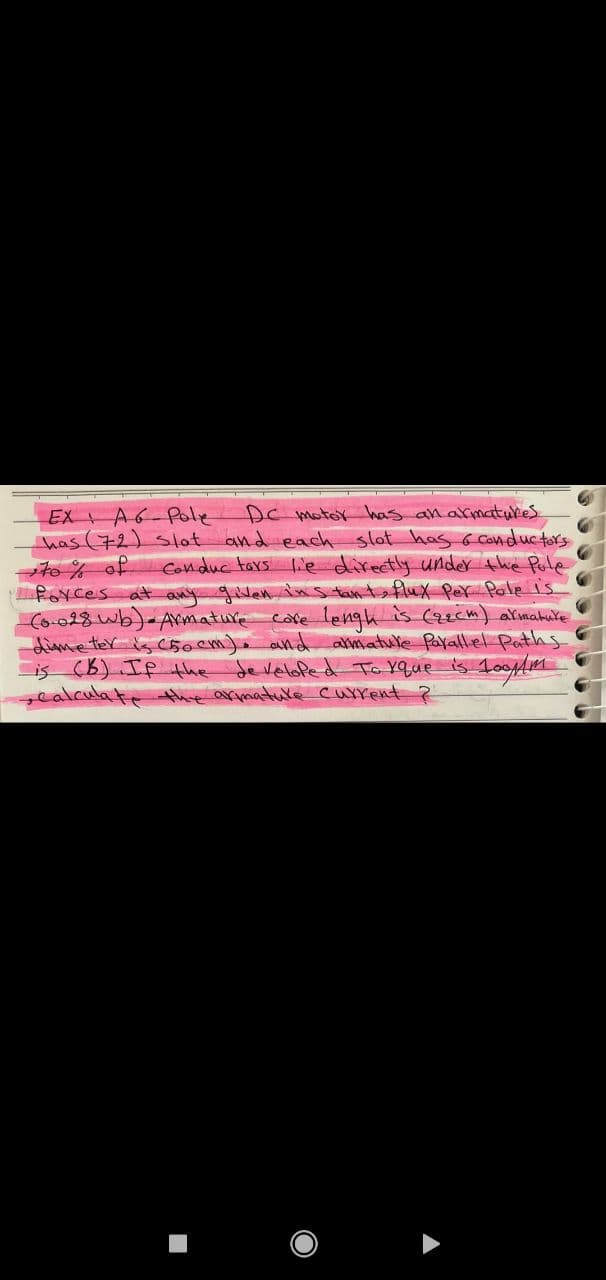 EX : A 6-Pole DC motor has an armatures
has (72) slot and each slot has 6 conductors
,70 % of Conductors lie directly under the Pole
forces at any given instant, flux per Pole is
(0.028 wb). Armature core lengh is (22cm) armature
dimeter is (50 cm). and armature Parallel Paths
is (6). If the develoPed Torque is 100 N/m
,calculate the armature Current ?